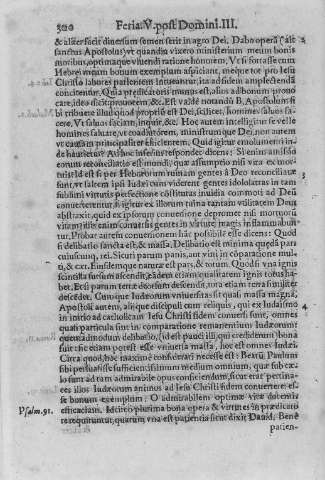 300 Feria.V.post Domini.III.
& aliter facit dictorum semen serit in agro Dei. Dabo operā (ait
sanctus Apostolus) vt quandiu vixero ministerium meum bonis
moribus, optimaque viuendi ratione honorem, Vt si forte esse cum
Hebrei meum bonum exemplum aspiciant, meque tot pro Iesu
Christo labores hilariter patientem, ita ad fidem amplectendā
concitentur. Quia prædicatoris munus est, alios ad bonum prouo
care, ideo dicit prouocem, &c. Est valde notandū B. Apostolum si
bi tribuere illud quod proprie est Dei, scilicet, homines saluos fa-
cere, Vt saluos faciam, inquit, &c. Hoc autem intelligitur se velle
homines saluare, vt coadiutorem, ministrumque Dei, non autem
vt causam principaliter efficientem. Quid igitur emolumenti in-
de haurietur? Ad hoc inferius respondet dicens: Si enim amissio
eorum reconciliatio est mundi, quæ assumptio nisi vita ex mor-
tuis? Id est si per Hebræorum ruinam gentes à Deo reconciliatæ
sunt, vt saltem ipsi Iudæi cum viderent gentes idololatras in tam
sublimi virtutis perfectione constitutas inuidia commoti ad Deū
conuerterentur, si igitur ex illorum ruina tantam vtilitatem Deus
abstraxit, quid ex ipsorum conuersione depromet nisi mortuorū
vitam? nisi enim conuersus gentes in virtute magis inflammabun-
tur, Probat autem conuersionem hāc possibile esse dicens: Quod
si delibatio sancta est, & massa. Delibatio est minima quædā pars
cuiuscunq; rei. Sicuti parum panis, aut vini in cōparatione mul-
ti, & cæt. Eiusdemque naturæ est pars, & totum. Quod si vna ignis
scintilla sursum ascendit, eādem etiam qualitatem ignis totus ha-
bet. Et si parum terræ deorsum descendit, tota etiam terra similiter
descendet. Cum igitur Iudæorum vniuersitas sit quasi massa magna,
Apostoli autem, aliique discipuli cum reliquis, qui ex Iudaismo
in initio ad catholicam Iesu Christi fidem conuersi sunt, omnes
quasi particula sint in comparatione remanentium Iudæorum
quemadmodum delibatio, (id est pauci illi, qui crediderunt) bona
fuit sic etiam potest esse vniuersa massa, hoc est omnes Iudæi.
Circa quod, hoc maxime considerari necesse est: Beatū Paulum
sibi persuasisse sufficientissimum medium omnium, quæ sub cæ-
lo sunt ad tam admirabile opus consiciendum, sicut erat pertina-
ces illos Iudæorum animos ad Iesu Christi fidem conuertere es-
se bonum exemplum. O admirabilem optimæ vitæ docentis
efficaciam. Idcirco plurima bona opera & virtutes in prædicato
re requiruntur, quarum vna est patientia sicut dixit Dauid. Bene
Psalm.91.
patien-